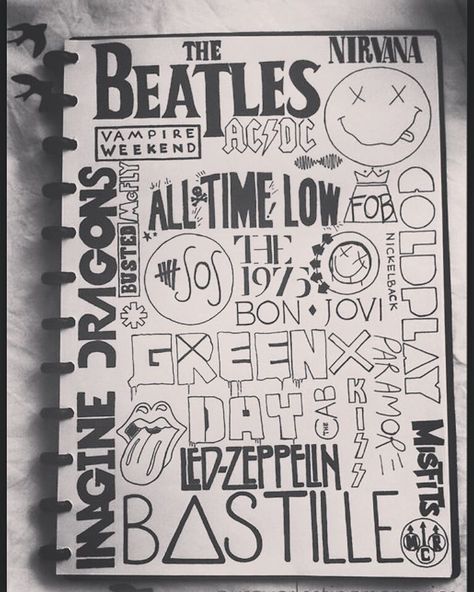 THE
BEATLES
NIRVANA
VAMPIRE
WEEKEND
AC/DC
BUSTED McFLY
ALL TIME LOW
FOB
COLDPLAY
IMAGINE DRAGONS
SOS
THE
1975
NICKELBACK
BON • JOVI
GREEN
DAY
X
PARAMORE
THE CAB
KISS
LED-ZEPPELIN
MISFITS
BASTILLE
MCR